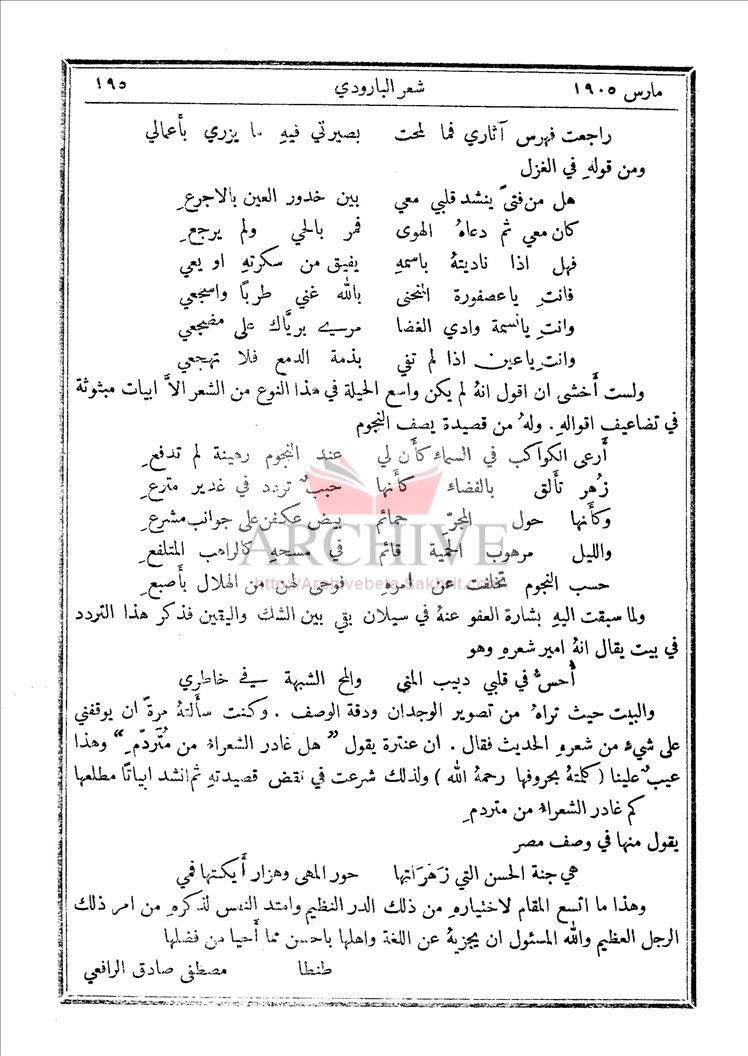 مارس ١٩٠٥ شعر البارودي ١٩٥
راجعت فهرس آثاري فما لمحت بصيرتي فيهِ ما يزري بأعمالي
ومن قولهِ في الغزل
هل من فتىً ينشد قلبي معي بين خدور العين بالاجرعِ
كان معي ثم دعاهُ الهوى فمر بالحي ولم يرجعِ
فهل اذا ناديتهُ باسمهِ يفيق من سكرتهِ او يعي
فانتِ ياعصفورة المنحنى بالله غني طربًا واسجعي
وانتِ يانسمة وادي الغضا مري برياك على مضجعي
وانتِ ياعين اذا لم تفي بذمة الدمع فلا تهجعي
ولست أخشى ان اقول انهُ لم يكن واسع الحيلة في هذا النوع من الشعر الاَّ ابيات مبثوثة
في تضاعيف اقوالهِ. ولهُ من قصيدة يصف النجوم
أرعى الكواكب في السماء كأن لي عند النجوم رهينة لم تدفعِ
زُهر تألق بالفضاء كأنها حببٌ تردد في غدير مترعِ
وكأنها حول المجرّ حمائم بيض عكفن على جوانب مشرعِ
والليل مرهوب الحمية قائم في مسحهِ كالراهب المتلفعِ
حسب النجوم تخلفت عن امرهِ فوحى لهن من الهلال بأصبعِ
ولما سبقت اليهِ بشارة العفو عنهُ في سيلان بقي بين الشك واليقين فذكر هذا التردد
في بيت يقال انهُ امير شعرهِ وهو
أحسُّ في قلبي دبيب المنى والمح الشبهة في خاطري
والبيت حيث تراهُ من تصوير الوجدان ودقة الوصف . وكنت سألتهُ مرةً ان يوقفني
على شيء من شعرهِ الحديث فقال . ان عنترة يقول " هل غادر الشعراءُ من مُتَردّمِ " وهذا
عيبٌ علينا ( كلمتهُ بحروفها رحمهُ الله ) ولذلك شرعت في نقض قصيدتهِ ثم انشد ابياتًا مطلعها
كم غادر الشعراءُ من متردمِ
يقول منها في وصف مصر
هي جنة الحسن التي زَهَراتها حور المهى وهزار أيكتها فمي
وهذا ما اتسع المقام لاختيارهِ من ذلك الدر النظيم وامتد النفس لذكرهِ من امر ذلك
الرجل العظيم والله المسئول ان يجزيهُ عن اللغة واهلها باحسن مما أحيا من فضلها
طنطا مصطفى صادق الرافعي
ARCHIVE
http://Archivebeta.Sakhrit.com